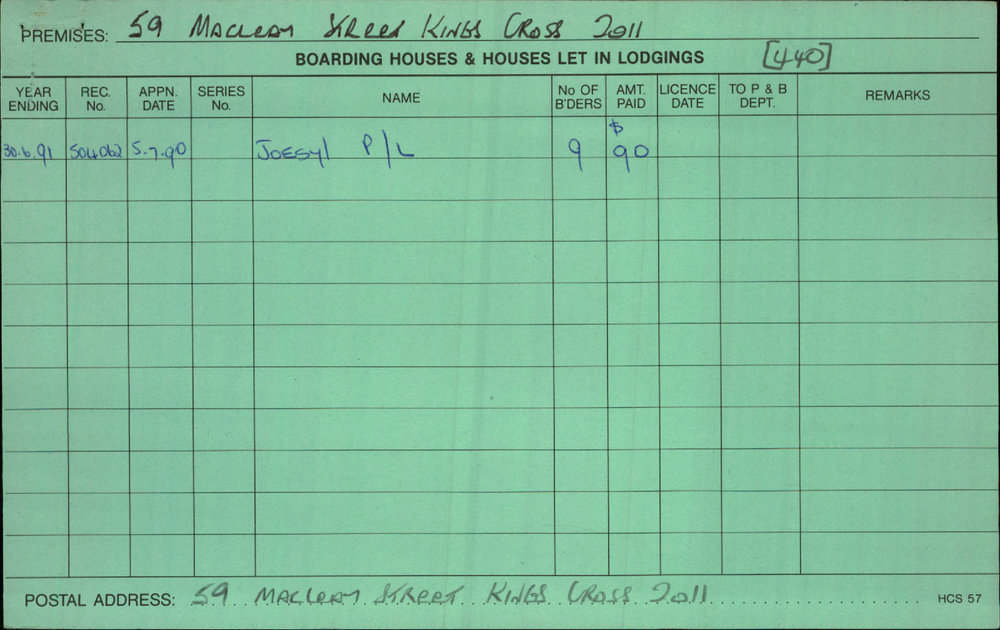 PREMISES: 59 Macleay Street Kings Cross 2011
BOARDING HOUSES & HOUSES LET IN LODGINGS [440]
YEAR ENDING REC. No. APPN. DATE SERIES No. NAME No OF B'DERS AMT. PAID LICENCE DATE TO P & B DEPT. REMARKS
30.6.91 504062 5.7.90 Joesyl P/L 9 $ 90
POSTAL ADDRESS: 59 Macleay Street Kings Cross 2011 HCS 57